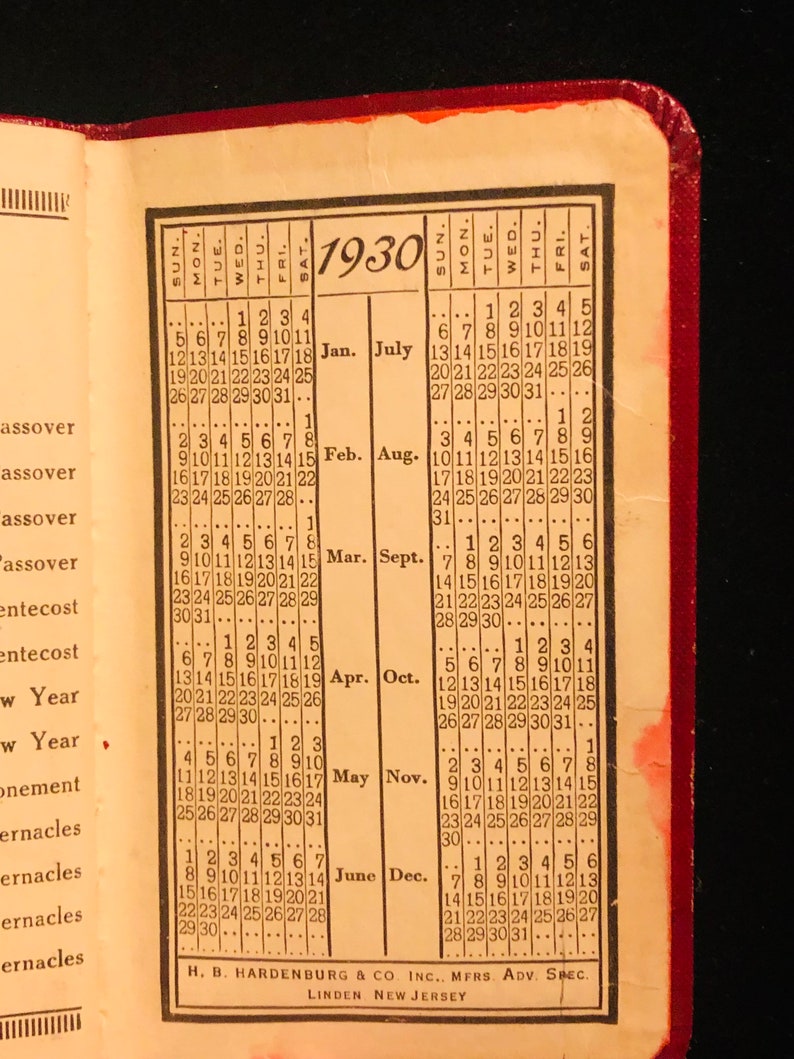 assover
assover
assover
Passover
entecost
entecost
w Year
w Year
onement
ernacles
ernacles
ernacles
ernacles
1930
SUN. MON. TUE. WED. THU. FRI. SAT.
Jan.
.. .. .. 1 2 3 4
5 6 7 8 9 10 11
12 13 14 15 16 17 18
19 20 21 22 23 24 25
26 27 28 29 30 31 ..
Feb.
.. .. .. .. .. .. 1
2 3 4 5 6 7 8
9 10 11 12 13 14 15
16 17 18 19 20 21 22
23 24 25 26 27 28 ..
Mar.
.. .. .. .. .. .. 1
2 3 4 5 6 7 8
9 10 11 12 13 14 15
16 17 18 19 20 21 22
23 24 25 26 27 28 29
30 31 .. .. .. .. ..
Apr.
.. .. 1 2 3 4 5
6 7 8 9 10 11 12
13 14 15 16 17 18 19
20 21 22 23 24 25 26
27 28 29 30 .. .. ..
May
.. .. .. .. 1 2 3
4 5 6 7 8 9 10
11 12 13 14 15 16 17
18 19 20 21 22 23 24
25 26 27 28 29 30 31
.. .. .. .. .. .. ..
June
1 2 3 4 5 6 7
8 9 10 11 12 13 14
15 16 17 18 19 20 21
22 23 24 25 26 27 28
29 30 .. .. .. .. ..
.. .. .. .. .. .. ..
SUN. MON. TUE. WED. THU. FRI. SAT.
July
.. .. 1 2 3 4 5
6 7 8 9 10 11 12
13 14 15 16 17 18 19
20 21 22 23 24 25 26
27 28 29 30 31 .. ..
Aug.
.. .. .. .. .. 1 2
3 4 5 6 7 8 9
10 11 12 13 14 15 16
17 18 19 20 21 22 23
24 25 26 27 28 29 30
31 .. .. .. .. .. ..
Sept.
.. 1 2 3 4 5 6
7 8 9 10 11 12 13
14 15 16 17 18 19 20
21 22 23 24 25 26 27
28 29 30 .. .. .. ..
Oct.
.. .. .. 1 2 3 4
5 6 7 8 9 10 11
12 13 14 15 16 17 18
19 20 21 22 23 24 25
26 27 28 29 30 31 ..
Nov.
.. .. .. .. .. .. 1
2 3 4 5 6 7 8
9 10 11 12 13 14 15
16 17 18 19 20 21 22
23 24 25 26 27 28 29
30 .. .. .. .. .. ..
Dec.
.. 1 2 3 4 5 6
7 8 9 10 11 12 13
14 15 16 17 18 19 20
21 22 23 24 25 26 27
28 29 30 31 .. .. ..
.. .. .. .. .. .. ..
H. B. HARDENBURG & CO. INC., MFRS. ADV. SPEC.
LINDEN NEW JERSEY